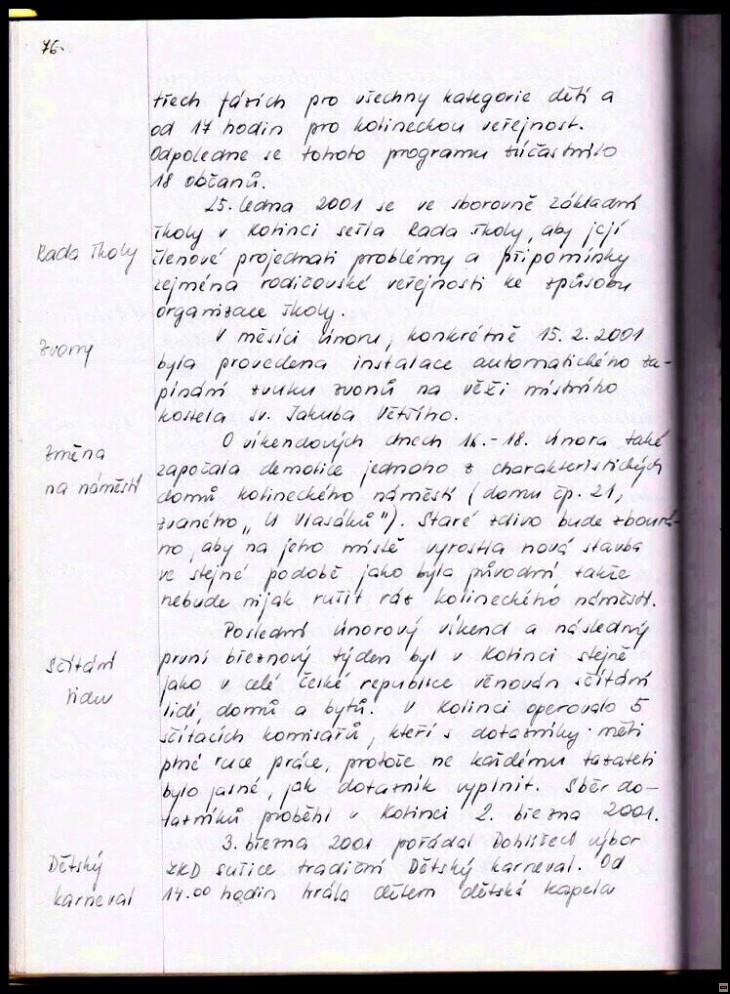 76.
třech fázích pro všechny kategorie dětí a
od 17 hodin pro kolineckou veřejnost.
Odpoledne se tohoto programu zúčastnilo
18 občanů.
25. ledna 2001 se ve sborovně základní
školy v Kolinci sešla Rada školy, aby její
Rada školy
členové projednali problémy a připomínky
zejména rodičovské veřejnosti ke způsobu
organizace školy.
V měsíci únoru, konkrétně 15. 2. 2001
Zvony
byla provedena instalace automatického za-
pínání zvuku zvonů na věži místního
kostela sv. Jakuba Většího.
O víkendových dnech 16.-18. února také
Změna
započala demolice jednoho z charakteristických
na náměstí
domů kolineckého náměstí (domu čp. 21,
zvaného „U Vlasáků"). Staré zdivo bude zbourá-
no, aby na jeho místě vyrostla nová stavba
ve stejné podobě jako byla původní, takže
nebude nijak rušit ráz kolineckého náměstí.
Poslední únorový víkend a následný
Sčítání
první březnový týden byl v Kolinci stejně
lidu
jako v celé České republice věnován sčítání
lidí, domů a bytů. V Kolinci operovalo 5
sčítacích komisařů, kteří s dotazníky měli
plné ruce práce, protože ne každému tazateli
bylo jasné, jak dotazník vyplnit. Sběr do-
tazníků proběhl v Kolinci 2. března 2001.
3. března 2001 pořádal Dohlížecí výbor
Dětský
ZKD Sušice tradiční Dětský karneval. Od
karneval
14.00 hodin hrála dětem dětská kapela